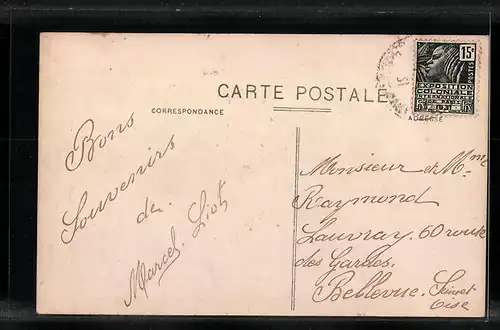 15c
POSTES
EXPOSITION
COLONIALE
INTERNATIONALE
CARTE POSTALE
CORRESPONDANCE
ADRESSE
Bons
Souvenirs
de
Marcel Liot
Monsieur et Mme
Raymond
Lauvray. 60 route
des Gardes.
Bellevue. Seine et
Oise